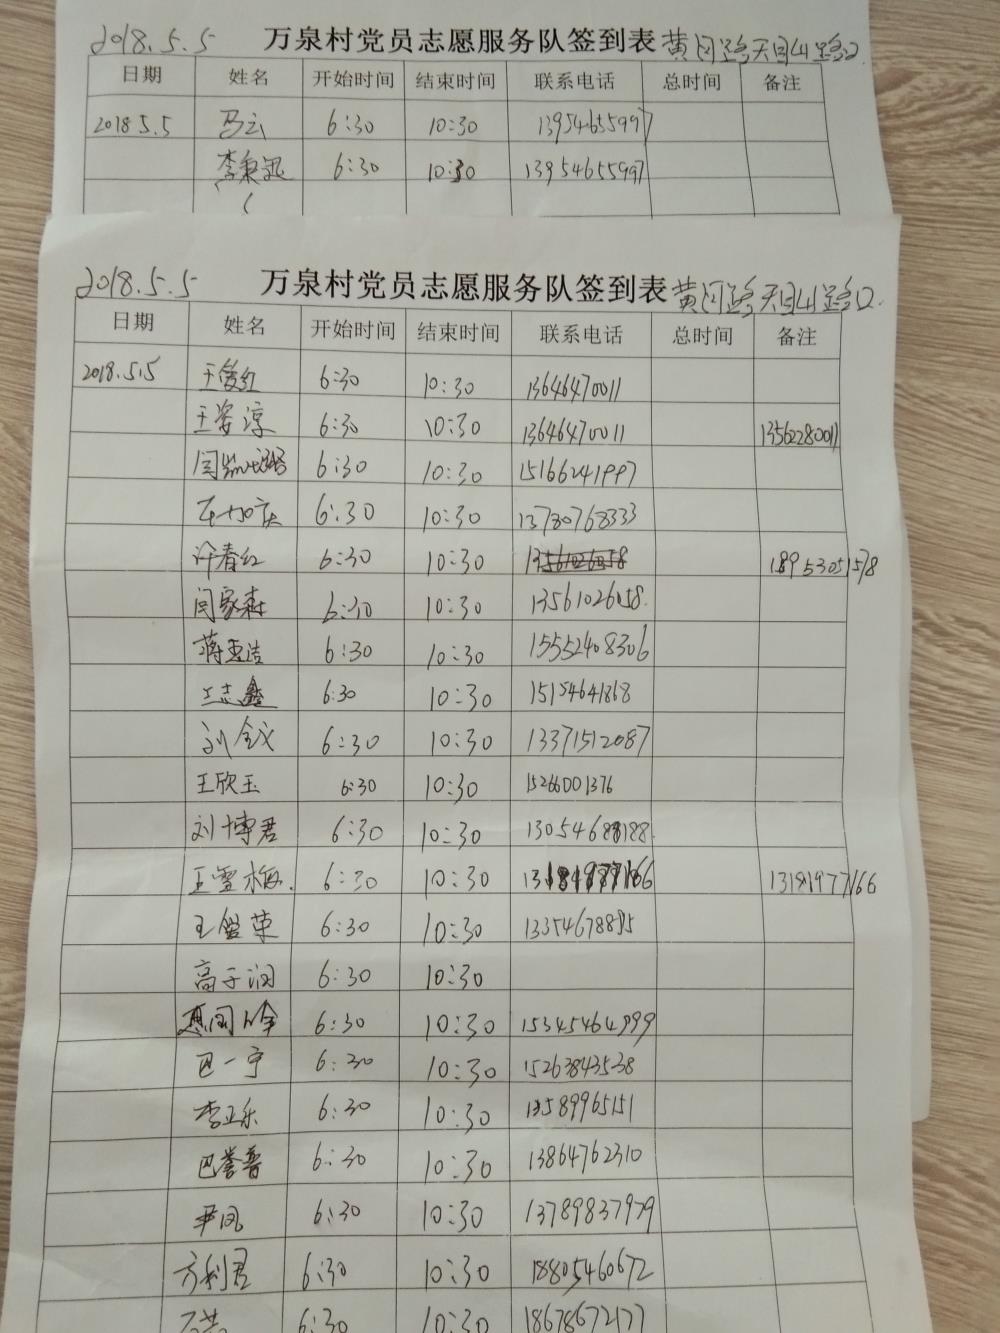 2018.5.5 万泉村党员志愿服务队签到表 黄河路天目山路口
日期 姓名 开始时间 结束时间 联系电话 总时间 备注
2018 5.5 马云 6:30 10:30 13954655997
李秉 6:30 10:30 13954655997
2018.5.5 万泉村党员志愿服务队签到表 黄河路天目山路口.
日期 姓名 开始时间 结束时间 联系电话 总时间 备注
2018.5.5 王俊红 6:30 10:30 13646470011
王姿淳 6:30 10:30 13646470011 13562280011
闫 6:30 10:30 15166241997
6:30 10:30 13780768333
许春红 6:30 10:30 18953051578
闫家森 6:30 10:30 13561026058.
蒋亚洁 6:30 10:30 15552408306
王志鑫 6:30 10:30 15154641868
刘金文 6:30 10:30 13371512087
王欣玉 6:30 10:30 15266001376
刘博君 6:30 10:30 13054688188.
王雪梅. 6:30 10:30 13181977166
王 荣 6:30 10:30 13354678895
高子润 6:30 10:30
6:30 10:30 15345464999
巴一宁 6:30 10:30 15263843538
李正乐 6:30 10:30 13589965151
巴誉普 6:30 10:30 13864762310
尹凤 6:30 10:30 13789837979
方利君 6:30 10:30 18805460672
6:30 10:30 18678672177